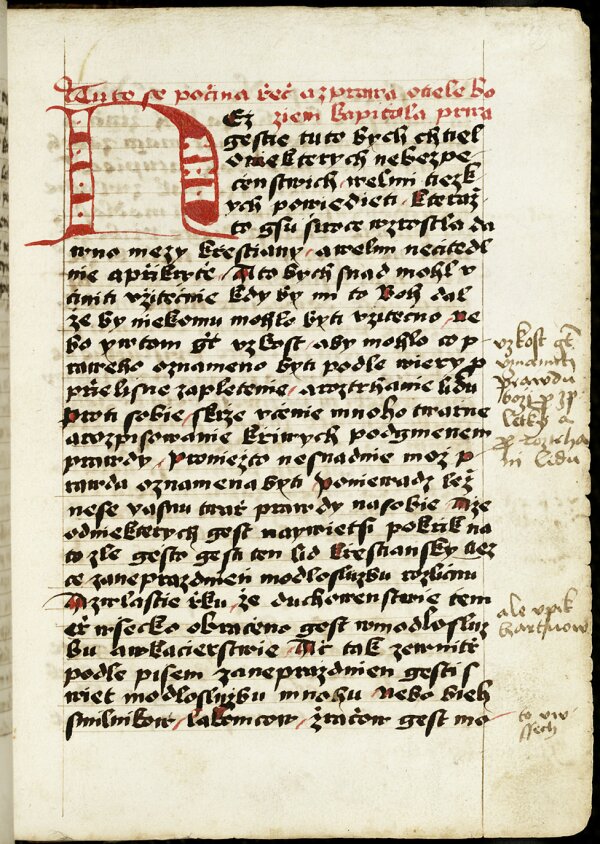 Tuto se počina řeč a zprawa o tiele bo
ziem kapitola prwa
Nez
gestie tuto bych chtiel
o niekterych nebezpe
censtwich welmi tiezk
ych powiedieti kteraž
to gsu siroce wzrostla da
wno mezy křestiany a welmi necitedl
nie a přikrytě A to bych snad mohl v
činiti vžitečnie kdy by mi to Boh dal
že by niekomu mohlo byti vzitečno Ne
bo y w tom gt vzkost aby mohlo co p
raweho oznameno byti podle wiery p
přielisne zapletenie a roztrhanie lidu
proti sobie skrze včenie mnoho twarne
a rozpisowanie kriwych podgmenem
prawdy Proniežto nesnadnie mož p
rawda oznamena byti poniewadz lež
nese vasnu twař prawdy na sobie A že
od niekterych gest naywietsi pokrik na
to zle gesto gest ten lid krestiansky tiez
ce zaneprazdnien modlosluzbu rozličnu
A zwlastie řku že duchowenstwie tem
eř wsecko obraceno gest w modlosluz
bu a w kacierstwie Ač tak zewnitř
podle pisem zaneprazdnien gest s
wiet modlosluzbu mnohu Nebo bieh
smilnikow lakomcow žračow gest mo
vzkost gt
oznamiti
prawdu
bozi p
a
p roztrha
ni lidu
ale vpik
to vw
ssech